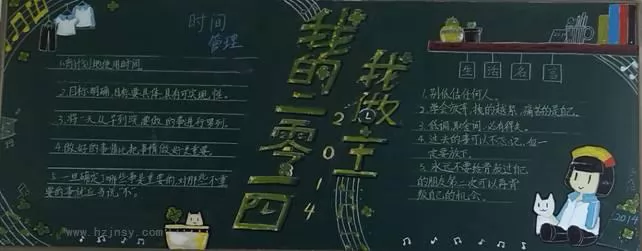 时间
管理
1.有计划地使用时间.
2.目标明确,目标要具体,具有可实现性.
3.将一天从早到晚要做的事进行罗列.
4.做好的事情比把事情做好更重要.
5.一旦确定了哪些事是重要的,对那些不重
要的事就应当说"不".
我的二零一四
我做主
2014
生活名言
1.别低估任何人.
2.学会放弃,拽的越紧,痛苦的是自己.
3.低调,取舍间,必有得失.
4.过去的事可以不忘记,但一
定要放下.
5.永远不要给背叛过自己
的朋友第二次可以再背
叛自己的机会.
2014
www.hzjnsy.com